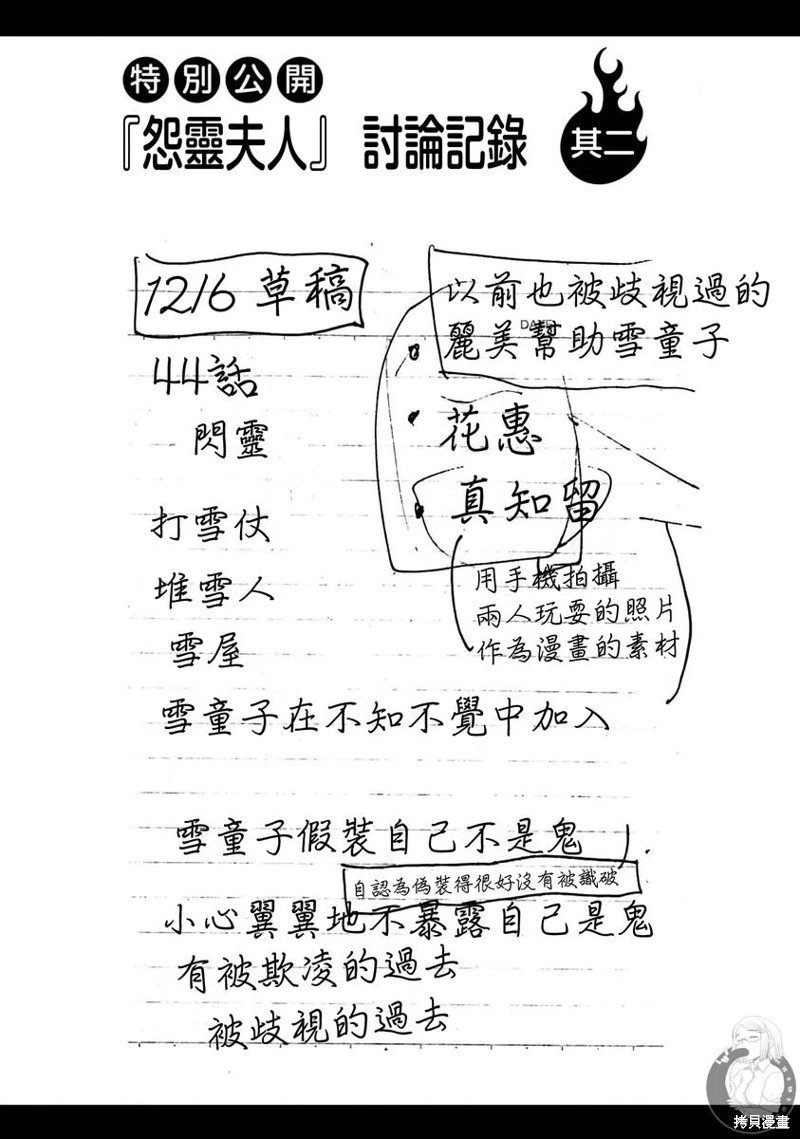 特別公開
『怨靈夫人』 討論記錄 其二
12/6 草稿
44話
閃靈
打雪仗
堆雪人
雪屋
以前也被歧視過的
麗美幫助雪童子
DATE
花惠
真知留
用手機拍攝
兩人玩耍的照片
作為漫畫的素材
雪童子在不知不覺中加入
雪童子假裝自己不是鬼
自認為偽裝得很好沒有被識破
小心翼翼地不暴露自己是鬼
有被欺凌的過去
被歧視的過去
拷貝漫畫